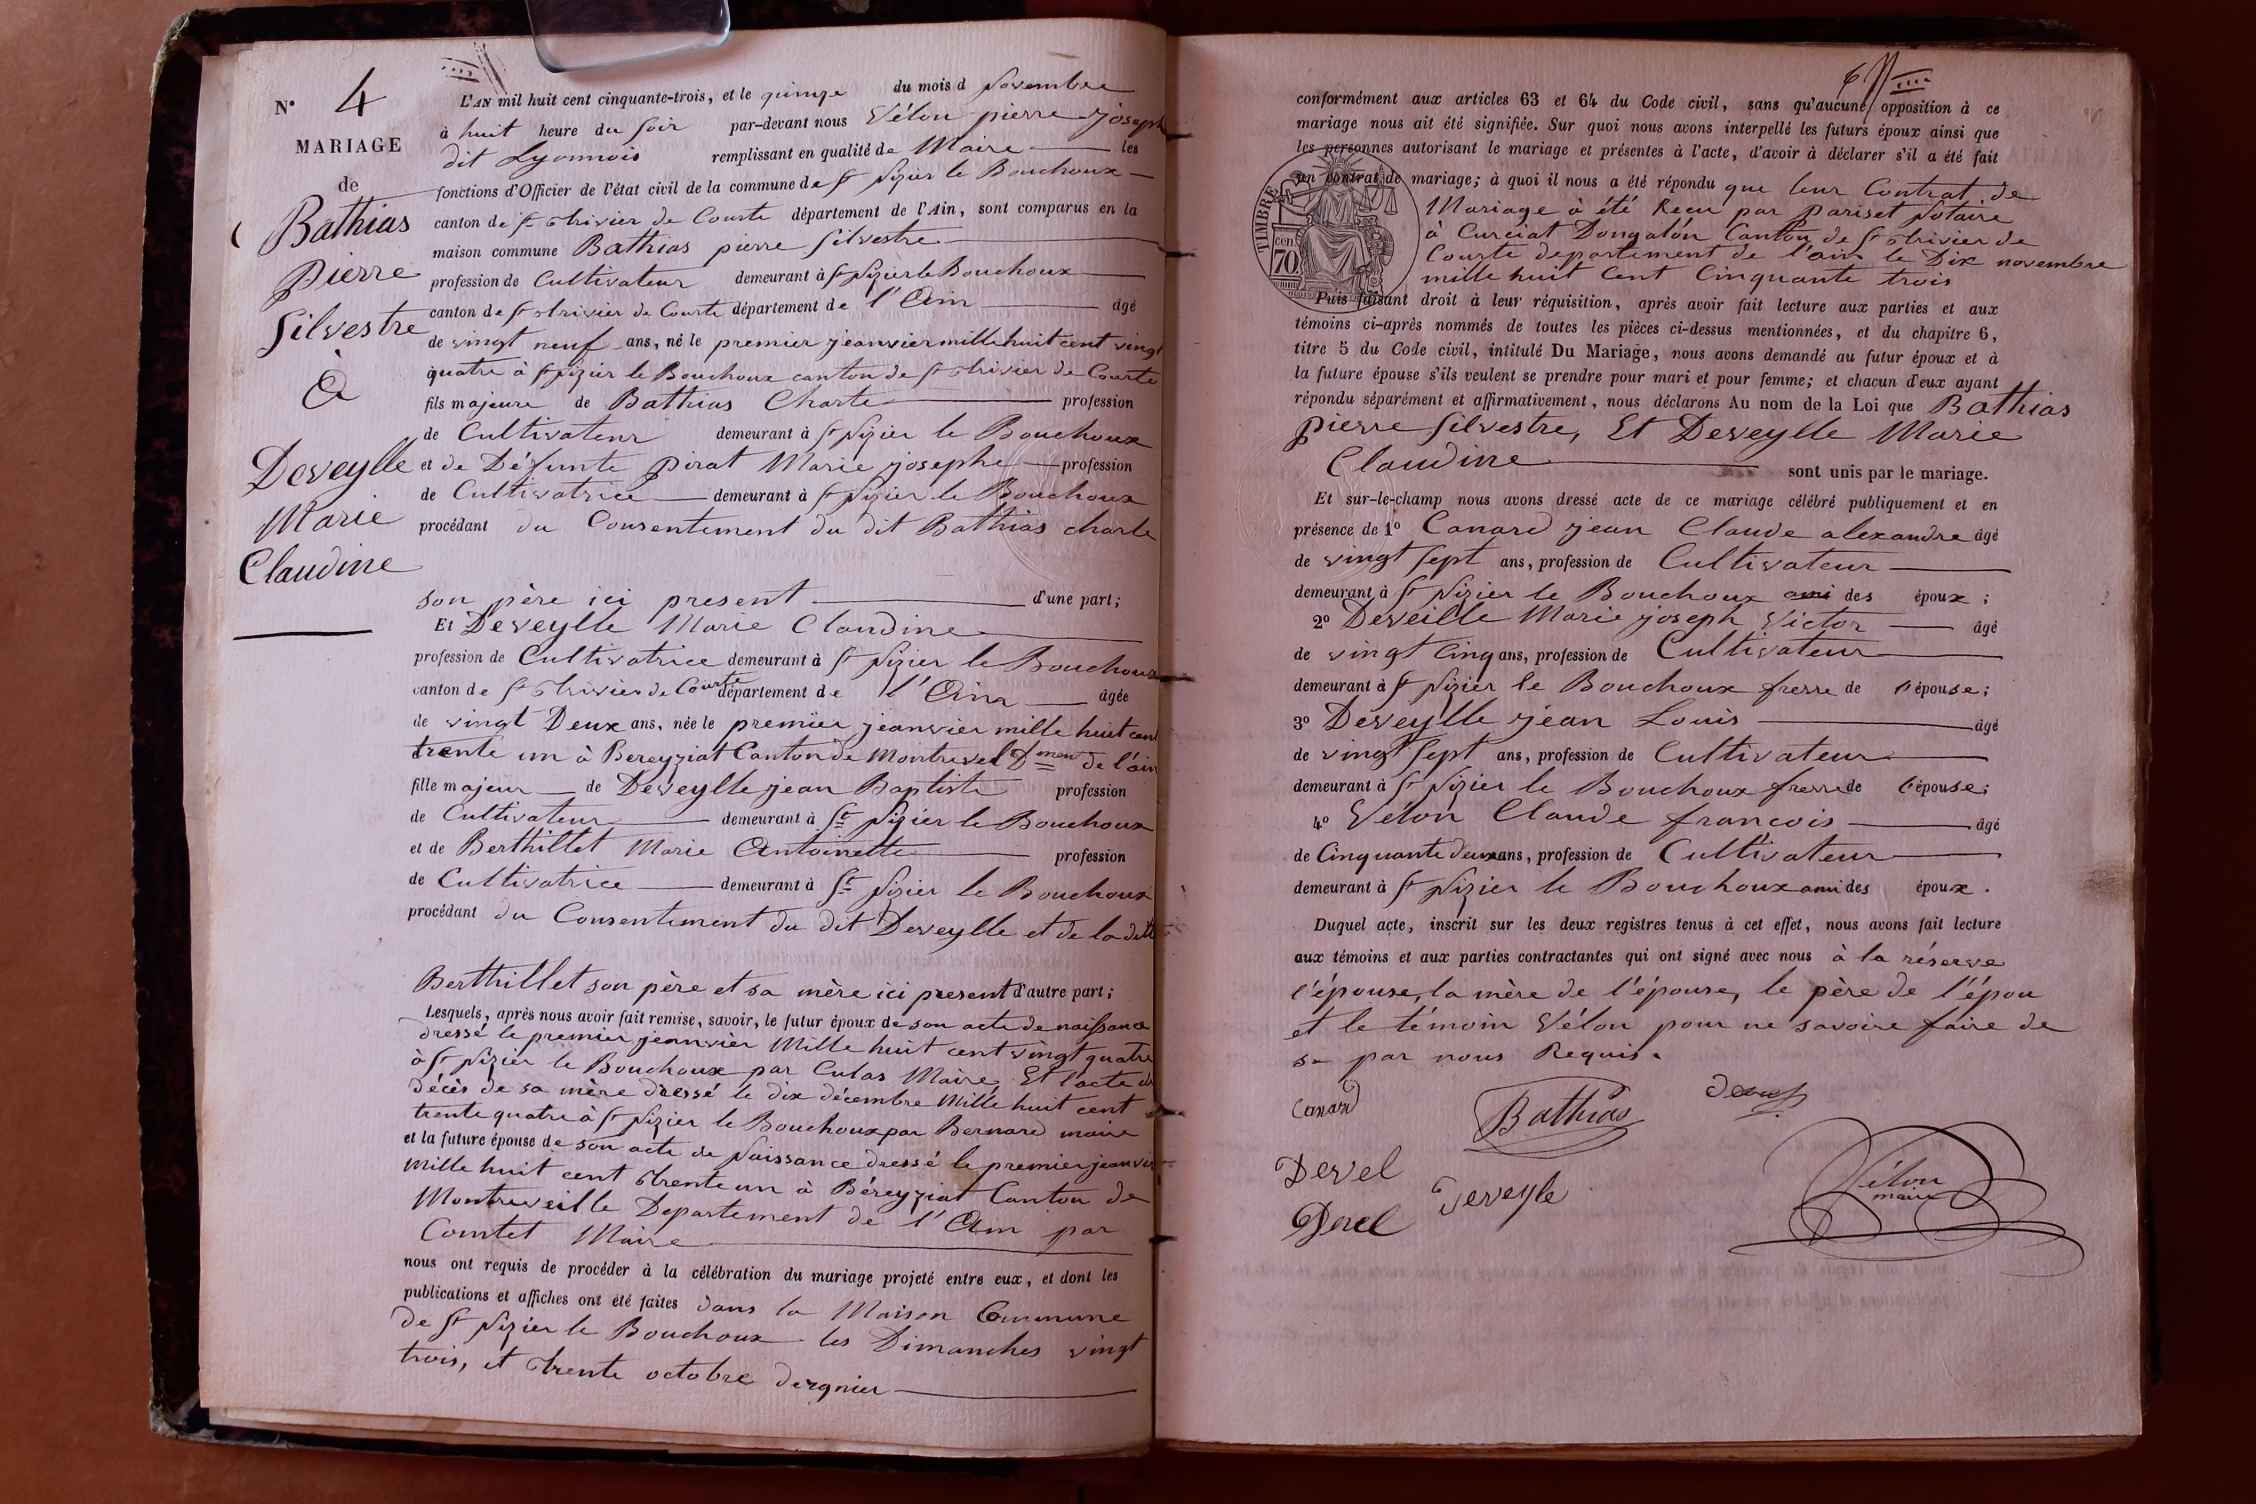 N° 4
MARIAGE
de
Bathias
Pierre
Silvestre
à
Deveylle
Marie
Claudine
L'AN mil huit cent cinquante-trois, et le quinze du mois d novembre
à huit heure du soir par-devant nous Vélon pierre joseph
dit Lyonnois remplissant en qualité de Maire les
fonctions d'Officier de l'état civil de la commune de St Nizier le Bouchoux
canton de St trivier de Courte département de l'Ain, sont comparus en la
maison commune Bathias pierre Silvestre
profession de Cultivateur demeurant à St Nizier le Bouchoux
canton de St trivier de Courte département de l'Ain âgé
de vingt neuf ans, né le premier jeanvier mille huit cent vingt
quatre à St Nizier le Bouchoux canton de St trivier de Courte
fils majeure de Bathias Charle profession
de Cultivateur demeurant à St Nizier le Bouchoux
et de Défunte pirat Marie josephe profession
de Cultivatrice demeurant à St Nizier le Bouchoux
procédant du Consentement du dit Bathias charle
son père ici present d'une part;
Et Deveylle Marie Claudine
profession de Cultivatrice demeurant à St Nizier le Bouchoux
canton de St trivier de Courte département de l'Ain âgée
de vingt Deux ans, née le premier jeanvier mille huit cent
trente un à Bereyziat Canton de Montrevel Dment de l'ain
fille majeur de Deveylle jean Baptiste profession
de Cultivateur demeurant à St Nizier le Bouchoux
et de Berthillet Marie Antoinette profession
de Cultivatrice demeurant à St Nizier le Bouchoux
procédant du Consentement du dit Deveylle et de la ditte
Berthillet son père et sa mère ici present d'autre part;
Lesquels, après nous avoir fait remise, savoir, le futur époux de son acte de naissance
dressé le premier jeanvier Mille huit cent vingt quatre
à St Nizier le Bouchoux par Culas Maire, Et l'acte de
décès de sa mère dressé le dix décembre Mille huit cent
trente quatre à St Nizier le Bouchoux par Bernard maire
et la future épouse de son acte de Naissance dressé le premier jeanvier
Mille huit cent trente un à Béreyziat Canton de
Montreveille Departement de l'Ain par
Comtet Maire
nous ont requis de procéder à la célébration du mariage projeté entre eux, et dont les
publications et affiches ont été faites dans la Maison Commune
de St Nizier le Bouchoux les Dimanches vingt
trois, et trente octobre dergnier
6
conformément aux articles 63 et 64 du Code civil, sans qu'aucune opposition à ce
mariage nous ait été signifiée. Sur quoi nous avons interpellé les futurs époux ainsi que
les personnes autorisant le mariage et présentes à l'acte, d'avoir à déclarer s'il a été fait
un contrat de mariage; à quoi il nous a été répondu que leur Contrat de
Mariage à été Recu par pariset Notaire
à Curciat Dongalón Canton de St trivier de
Courte departement de l'ain le Dix novembre
mille huit Cent Cinquante trois
TIMBRE
cen.
70.
Puis faisant droit à leur réquisition, après avoir fait lecture aux parties et aux
témoins ci-après nommés de toutes les pièces ci-dessus mentionnées, et du chapitre 6,
titre 5 du Code civil, intitulé Du Mariage, nous avons demandé au futur époux et à
la future épouse s'ils veulent se prendre pour mari et pour femme; et chacun d'eux ayant
répondu séparément et affirmativement, nous déclarons Au nom de la Loi que Bathias
pierre Silvestre, Et Deveylle Marie
Claudine sont unis par le mariage.
Et sur-le-champ nous avons dressé acte de ce mariage célébré publiquement et en
présence de 1° Canard jean Claude alexandre âgé
de vingt sept ans, profession de Cultivateur
demeurant à St Nizier le Bouchoux ami des époux;
2° Deveille Marie joseph Victor âgé
de vingt Cinq ans, profession de Cultivateur
demeurant à St Nizier le Bouchoux frerre de l'épouse;
3° Deveylle jean Louis âgé
de vingt sept ans, profession de Cultivateur
demeurant à St Nizier le Bouchoux frerre de l'épouse;
4° Vélon Claude francois âgé
de Cinquante deux ans, profession de Cultivateur
demeurant à St Nizier le Bouchoux ami des époux.
Duquel acte, inscrit sur les deux registres tenus à cet effet, nous avons fait lecture
aux témoins et aux parties contractantes qui ont signé avec nous à la réserve
l'épouse, la mère de l'épouse, le père de l'épou
et le témoin Vélon pour ne savoire faire de
ce par nous Requis.
Canard
Bathias
Devel
Deveyle
Devel
Vélon
maire